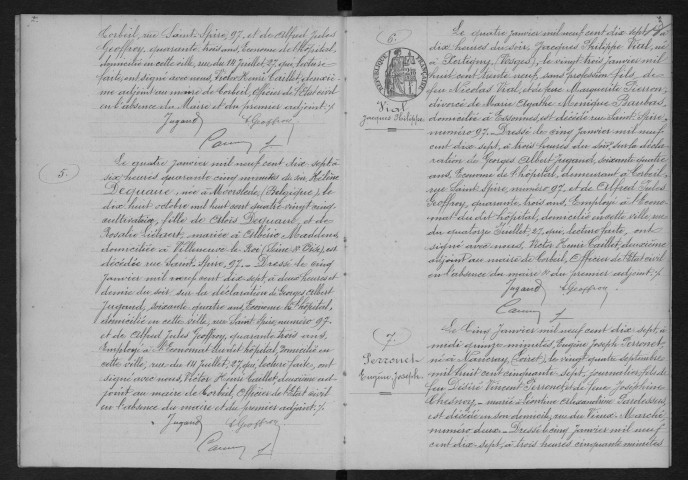 Corbeil, rue Saint-Spire, 97, et de Alfred Jules
Geoffroy, quarante trois ans, Econome de l'hôpital,
domiciliés en cette ville, rue du 14 Juillet, 27, qui, lecture
faite, ont signé avec nous, Victor Henri Caillet, deuxième
adjoint au maire de Corbeil, Officier de l'Etat civil
en l'absence du Maire et du premier adjoint./.
Jugand
Geoffroy
5.
Le quatre janvier mil neuf cent dix sept à
six heures quarante cinq minutes du soir, Hélène
née à Moorslede (Belgique), le
dix huit octobre mil huit cent quatre vingt cinq
cultivatrice, fille de et de
Rosalie mariée à
domiciliée à Villeneuve le Roi (Seine & Oise), est
décédée rue Saint-Spire, 97. - Dressé le cinq
janvier mil neuf cent dix sept à deux heures et
demie du soir sur la déclaration de Georges Albert
Jugand, soixante quatre ans, Econome de l'hôpital,
domicilié en cette ville, rue Saint-Spire, numéro 97
et de Alfred Jules Geoffroy, quarante trois ans,
Employé à l'Economat du dit hôpital, domicilié en
cette ville, rue du 14 Juillet, 27, qui, lecture faite, ont
signé avec nous, Victor Henri Caillet deuxième ad-
joint au maire de Corbeil, Officier de l'Etat civil
en l'absence du maire et du premier adjoint./.
Jugand
Geoffroy
6.
REPUBLIQUE FRANÇAISE
Vial
Jacques Philippe
Le quatre janvier mil neuf cent dix sept à
dix heures du soir, Jacques Philippe Vial, né
à (Vosges), le vingt janvier mil
huit cent neuf, sans profession, fils de
feu Nicolas Vial, et de feue Marguerite Pierron,
divorcé de Marie Monique
domicilié à Essonnes, est décédé rue Saint-Spire,
numéro 97. - Dressé le cinq janvier mil neuf
cent dix sept, à trois heures du soir, sur la décla-
ration de Georges Albert Jugand, soixante quatre
ans, Econome de l'hôpital, demeurant à Corbeil,
rue Saint-Spire, numéro 97, et de Alfred Jules
Geoffroy, quarante trois ans, Employé à l'Econo-
mat du dit hôpital, domicilié en cette ville, rue
du quatorze Juillet, 27, qui, lecture faite, ont
signé avec nous, Victor Henri Caillet, deuxième
adjoint au maire de Corbeil, Officier de l'Etat civil
en l'absence du maire & du premier adjoint./.
Jugand
Geoffroy
7.
Perronet
Eugène Joseph
Le Cinq Janvier mil neuf cent dix sept, à
midi quinze minutes, Eugène Joseph Perronet,
né à (Loiret), le vingt quatre septembre
mil huit cent cinquante sept, journalier, fils de
feu Désiré Vincent Perronet et de feue Joséphine
Chesnoy - marié à Alexandrine
est décédé en son domicile, rue du Vieux-Marché
numéro deux - Dressé le cinq janvier mil neuf
cent dix sept, à trois heures cinquante minutes